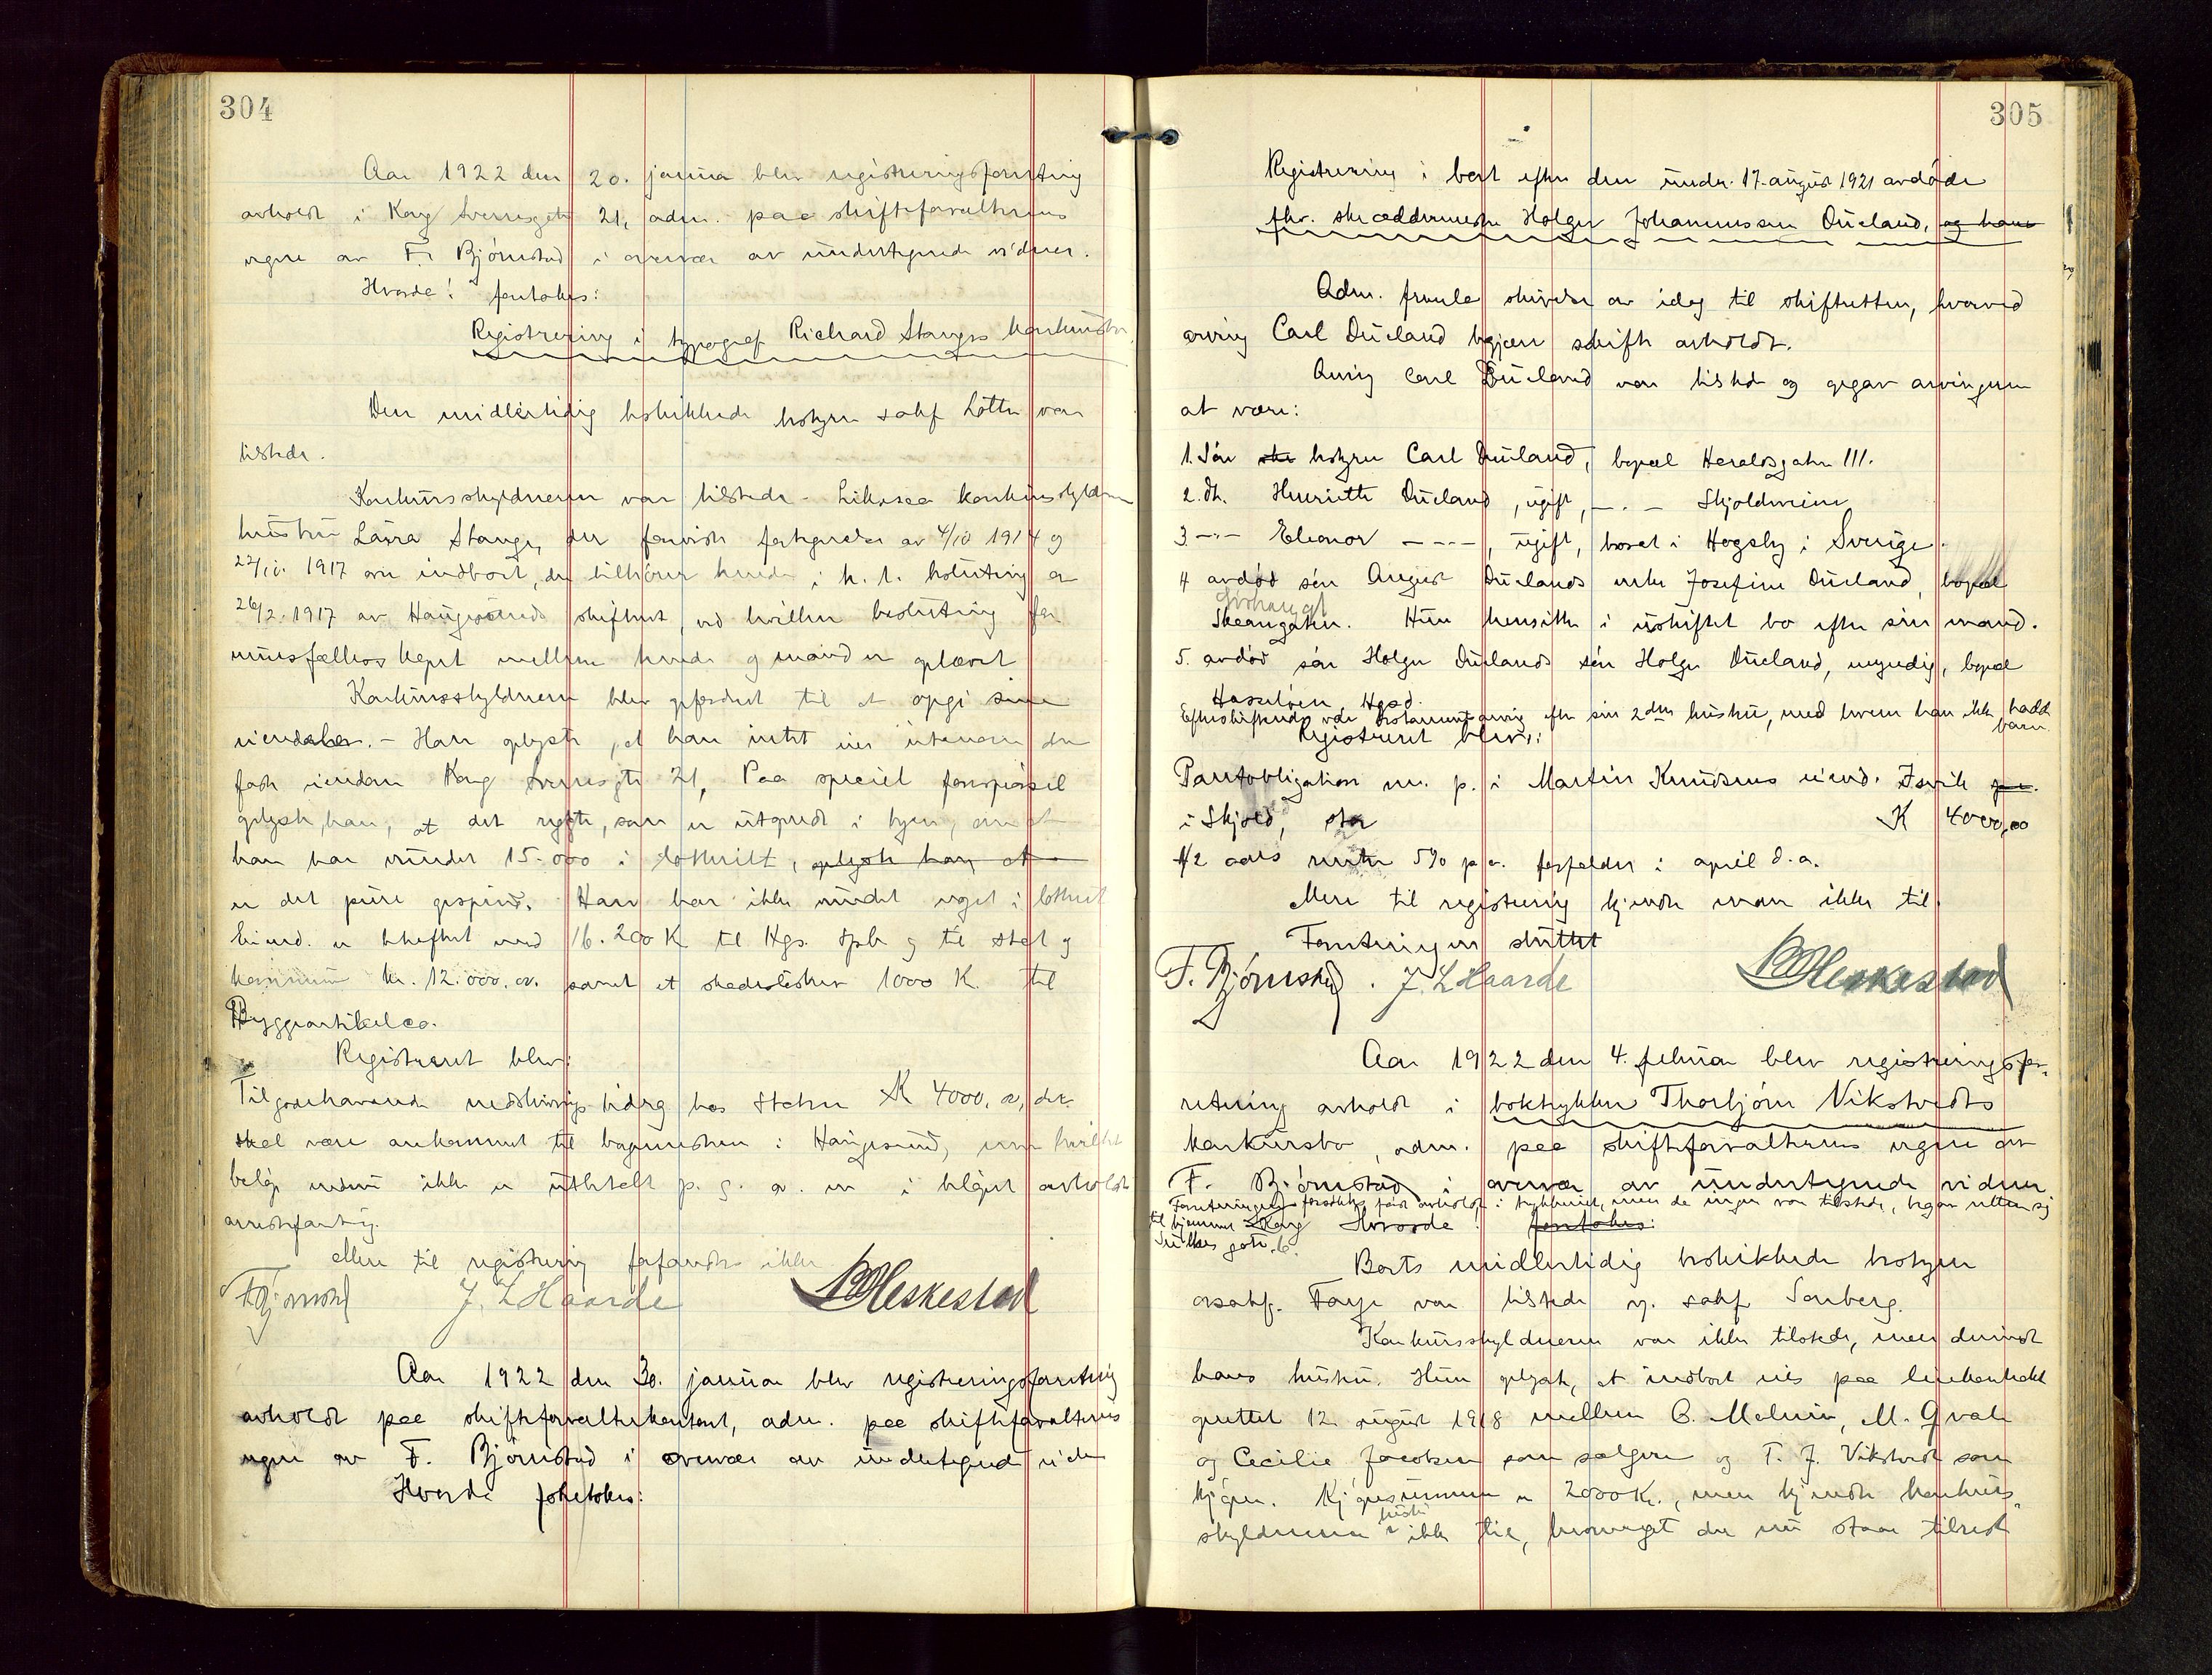 304
Aar 1922 den 20. januar blev registreringsforretning
avholdt i Kong Sverresgate 21, adm. paa skifteforvalterens
vegne av F. Bjørnstad i overvær av undertegnede vidner.
Hvorda! foretokes:
Registrering i typograf Richard Stanges konkursbo.
Den midlertidig beskikkede bestyrer sakf Lötte var
tilstede.
Konkursskyldneren var tilstede. Likesaa konkursskyldn
hustru Laura Stange, der foreviste fortegnelse av 4/10 1914 og
22/10. 1917 over indbo, der tilhører hende i h. t. beslutning av
26/2. 1917 av Haugesunds skifteret, ved hvilken beslutning for
muesfælles bopet mellem hende og mand er oplævet
Konkursskyldneren blev opfordret til at opgi sine
eiendeler. - Han oplyste, at han intet eier utenom den
faste eiendom Kong Sverresgt 21, Paa speciel forespørsel
oplyste han, at det rygte, som er utspredt i byen, om at
han har vundet 15.000 i lotteriet, oplyste han, at
er det pure opspind. Han har ikke vundet noget i lotteriet
Eiend. er beheftet med 16.200 K til Hgs. Spb og til stat og
kommune kr. 12.000.00. samt et skadesløsbrev 1000 K. til
Byggeartikelco.
Registreret blev:
Tilgodehavende nedskrivnings bidrag hos Staten K 4000,00, der
skal være ankommet til bagmesteren i Haugesund, men hvilket
beløp endnu ikke er utbetalt p. g. av. en i beløpet avholdt
arrestforretng.
Mere til registrering forfandtes ikke
F. Bjørnstad J. L Haarde B Heskestad
Aar 1922 den 30. januar blev registreringsforretning
avholdt paa skifteforvalterkontoret, adm. paa skifteforvalterens
vegne av F. Bjørnstad i overvær av undertegnede vidner
Hvorda foretokes:
305
Registrering i boet efter den under 17. august 1921 avdøde
fhv. skræddermester Holger Johannessen Dueland, og hans
Adm. fremla skrivelse av idag til skifteretten, hvorved
arving Carl Dueland begjærer skifte avholdt.
Arving Carl Dueland var tilstede og opgav arvingerne
at være:
1. Søn bestyrer Carl Dueland, bopæl Haraldsgaten 111.
2. dt. Henriette Dueland, ugift, — . — Skjoldveien
3 — " — Eleonor — - — , ugift, bosat i Høgsby i Sverige.
4 avdød søn August Duelands enke Josefine Dueland, bopæl
Skaaregaten. Hun hensitter i uskiftet bo efter sin mand.
5. avdød søn Holger Duelands søn Holger Dueland, umyndig, bopæl
Hasseløen Hgsd.
Efterskiftende var testamentsarving efter sin 2den hustru, med hvem han ikke hadde
barn.
Registreret blev:
Pantobligation m. p. i Martin Knudsens eiend. Isvik
i Skjold, stor K 4000,00
1/2 aars rente 5% p a. forfalder i april d. a.
Mere til registrering kjendte man ikke til.
Forretningen sluttet
F. Bjørnstad. J. L Haarde B Heskestad
Aar 1922 den 4. februar blev registreringsfor-
retning avholdt i boktrykker Thorbjørn Vikstvedts
konkursbo, adm. paa skifteforvalterens vegne av
F. Bjørnstad i overvær av undertegnede vidner
Forretningen forsøktes først avholdt i trykkeriet, men da ingen var tilstede, begav retten sig
til hjemmet Hvorda foretokes:
gate 6.
Boets midlertidig beskikkede bestyrer
osakf. Farye var tilstede v. sakf Sonberg.
Konkursskyldneren var ikke tilstede, men derimot
hans hustru. Hun oplyste, at indboet eies paa leiekontrakt
oprettet 12. august 1918 mellem C. Melvin, M. Qvale
og Cecilie Jacobsen som sælgere og T. J. Vikstvedt som
kjøper. Kjøpesummen er 2000 Kr., men kjendte konkurs
skyldnerens hustru ikke til, hvorvidt der nu staar tilrest